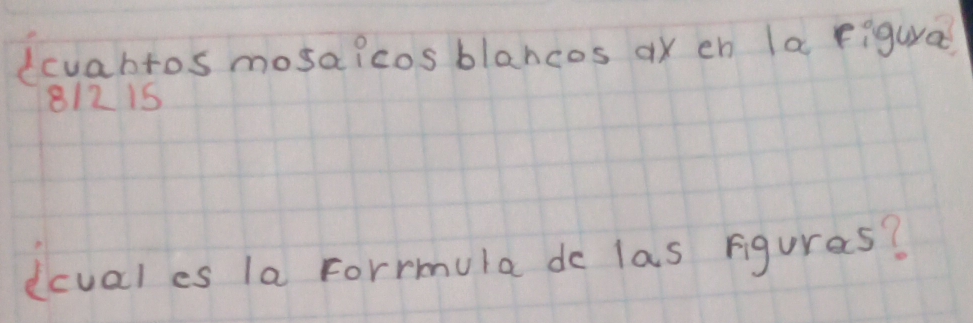 ¿cuantos mosaicos blancos ax en la Figura?
812 15
¿cual es la Forrmula de las Figuras?